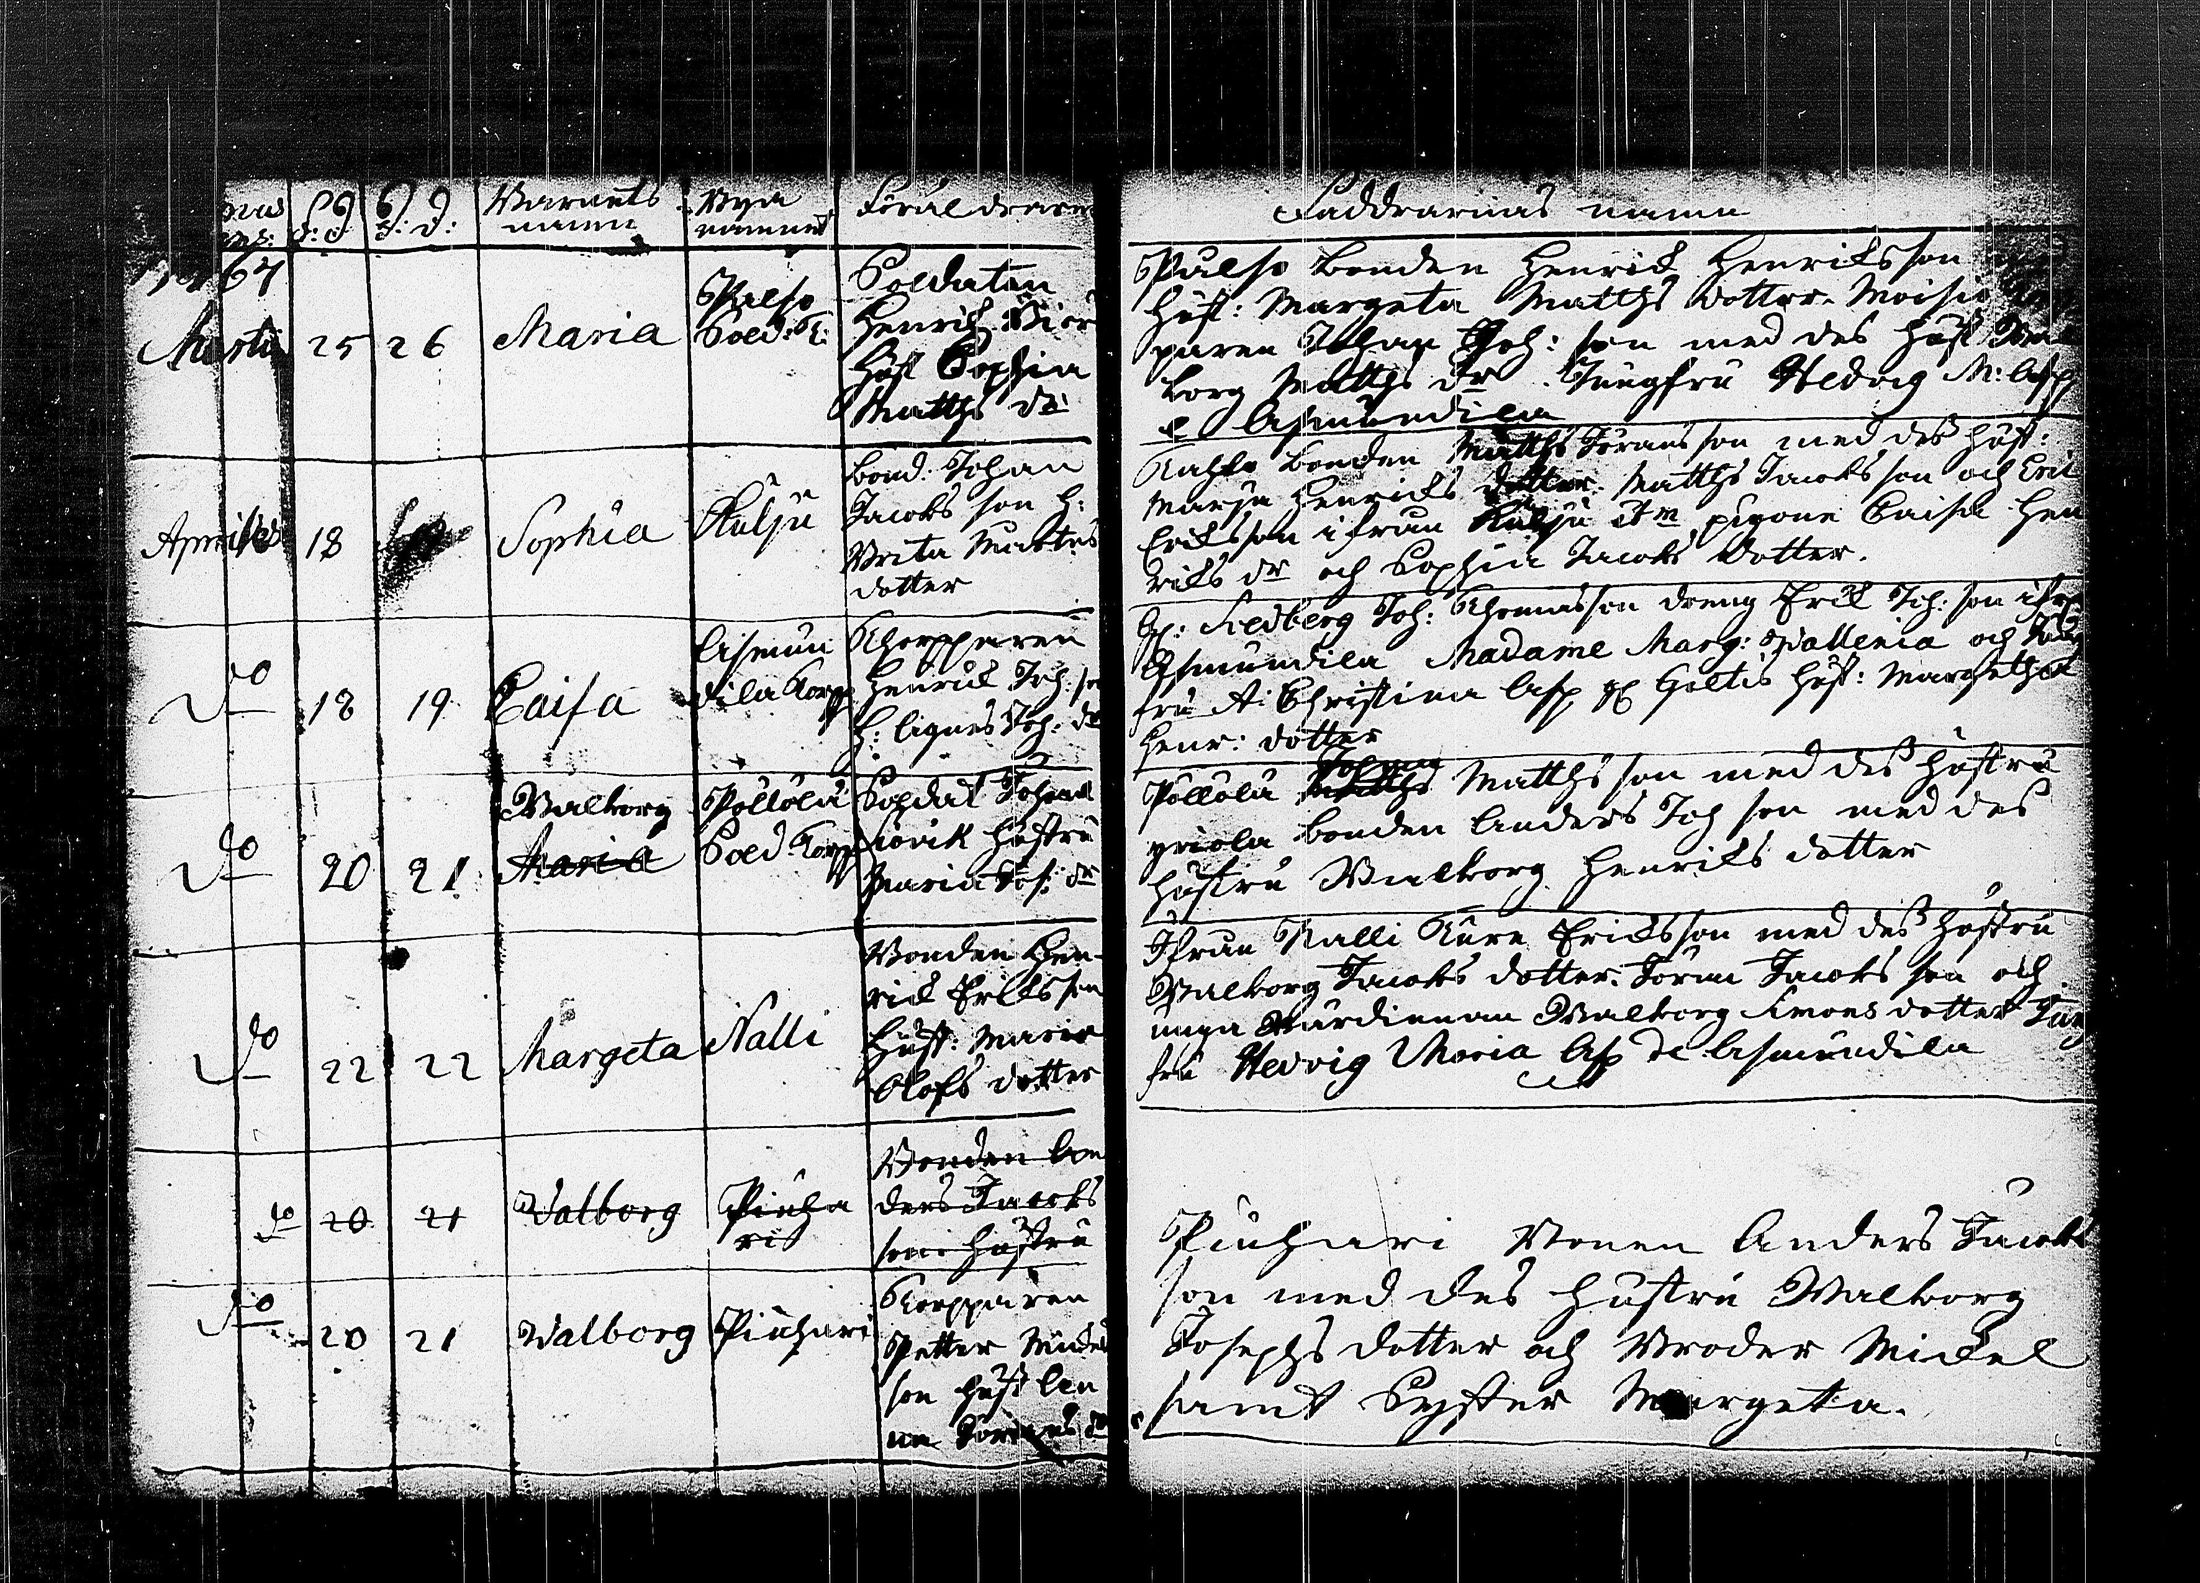 Barnets namn
Bya namnet
Föräldrarn
1767
Martii 25 26 Maria
Pulso Sold: T:
Soldaten
Henrich
Hust Sophia
Matths dr
Aprilis 18 Sophia Kulju
Bond: Johan
Jacobs son H:
Brita Martens
dotter
do 18 19 Caisa
Asmun
dila Torpp
Thorpparen
Henrick Joh: son
H: Agnes Joh: dr
do 20 21 Walborg
Maria
Pöllölä
Sold: Torpp
Soldat Johan
hustru
Maria Jos: dr
do 22 22 Margeta Nalli
Bonden Hen-
rick Ericksson
Hust: Maria
Olofs dotter
do 20 21 Walborg
Piuha
ri
Bonden An
ders Jacobs
son hustru
do 20 21 Walborg Piuhari
Torpparen
Petter Mickels
son hust An
na Görans dr
Faddrarnas namn
Pulso bonden Henrick Henricksson
Hust: Margeta Matths dotter. Moisio
paren Johan Joh: son med des hust Wal
borg Matths dr. Jungfru Hedvig M: Asp
Asmundila
bonden Matths Göransson med des hust:
Marja Henricks dotter. Matths Jacobs son och Eric
Ericksson ifrån Kulju pigone Caisa Hen
ricks dr och Sophia Jacobs dotter.
Joh: Thomasson dreng Erick Joh: son ifrå
Asmundila Madame Marg: Wallenia och Jung
fru A: Christina Asp hust: Margetha
Henr: dotter
Pöllölä Johan Matths son med des hustru
bonden Anders Joh son med des
hustru Walborg Henricks dotter
Ifrån Nalli Ericksson med des hustru
Walborg Jacobs dotter. Göran Jacobs son och
unga Walborg Simons dotter Jung
fru Hedvig Maria Asp de Asmundila
Piuhari Bonen Anders Jacobs
son med des hustru Walborg
Josephs dotter och Broder Mickel
samt Syster Margeta.